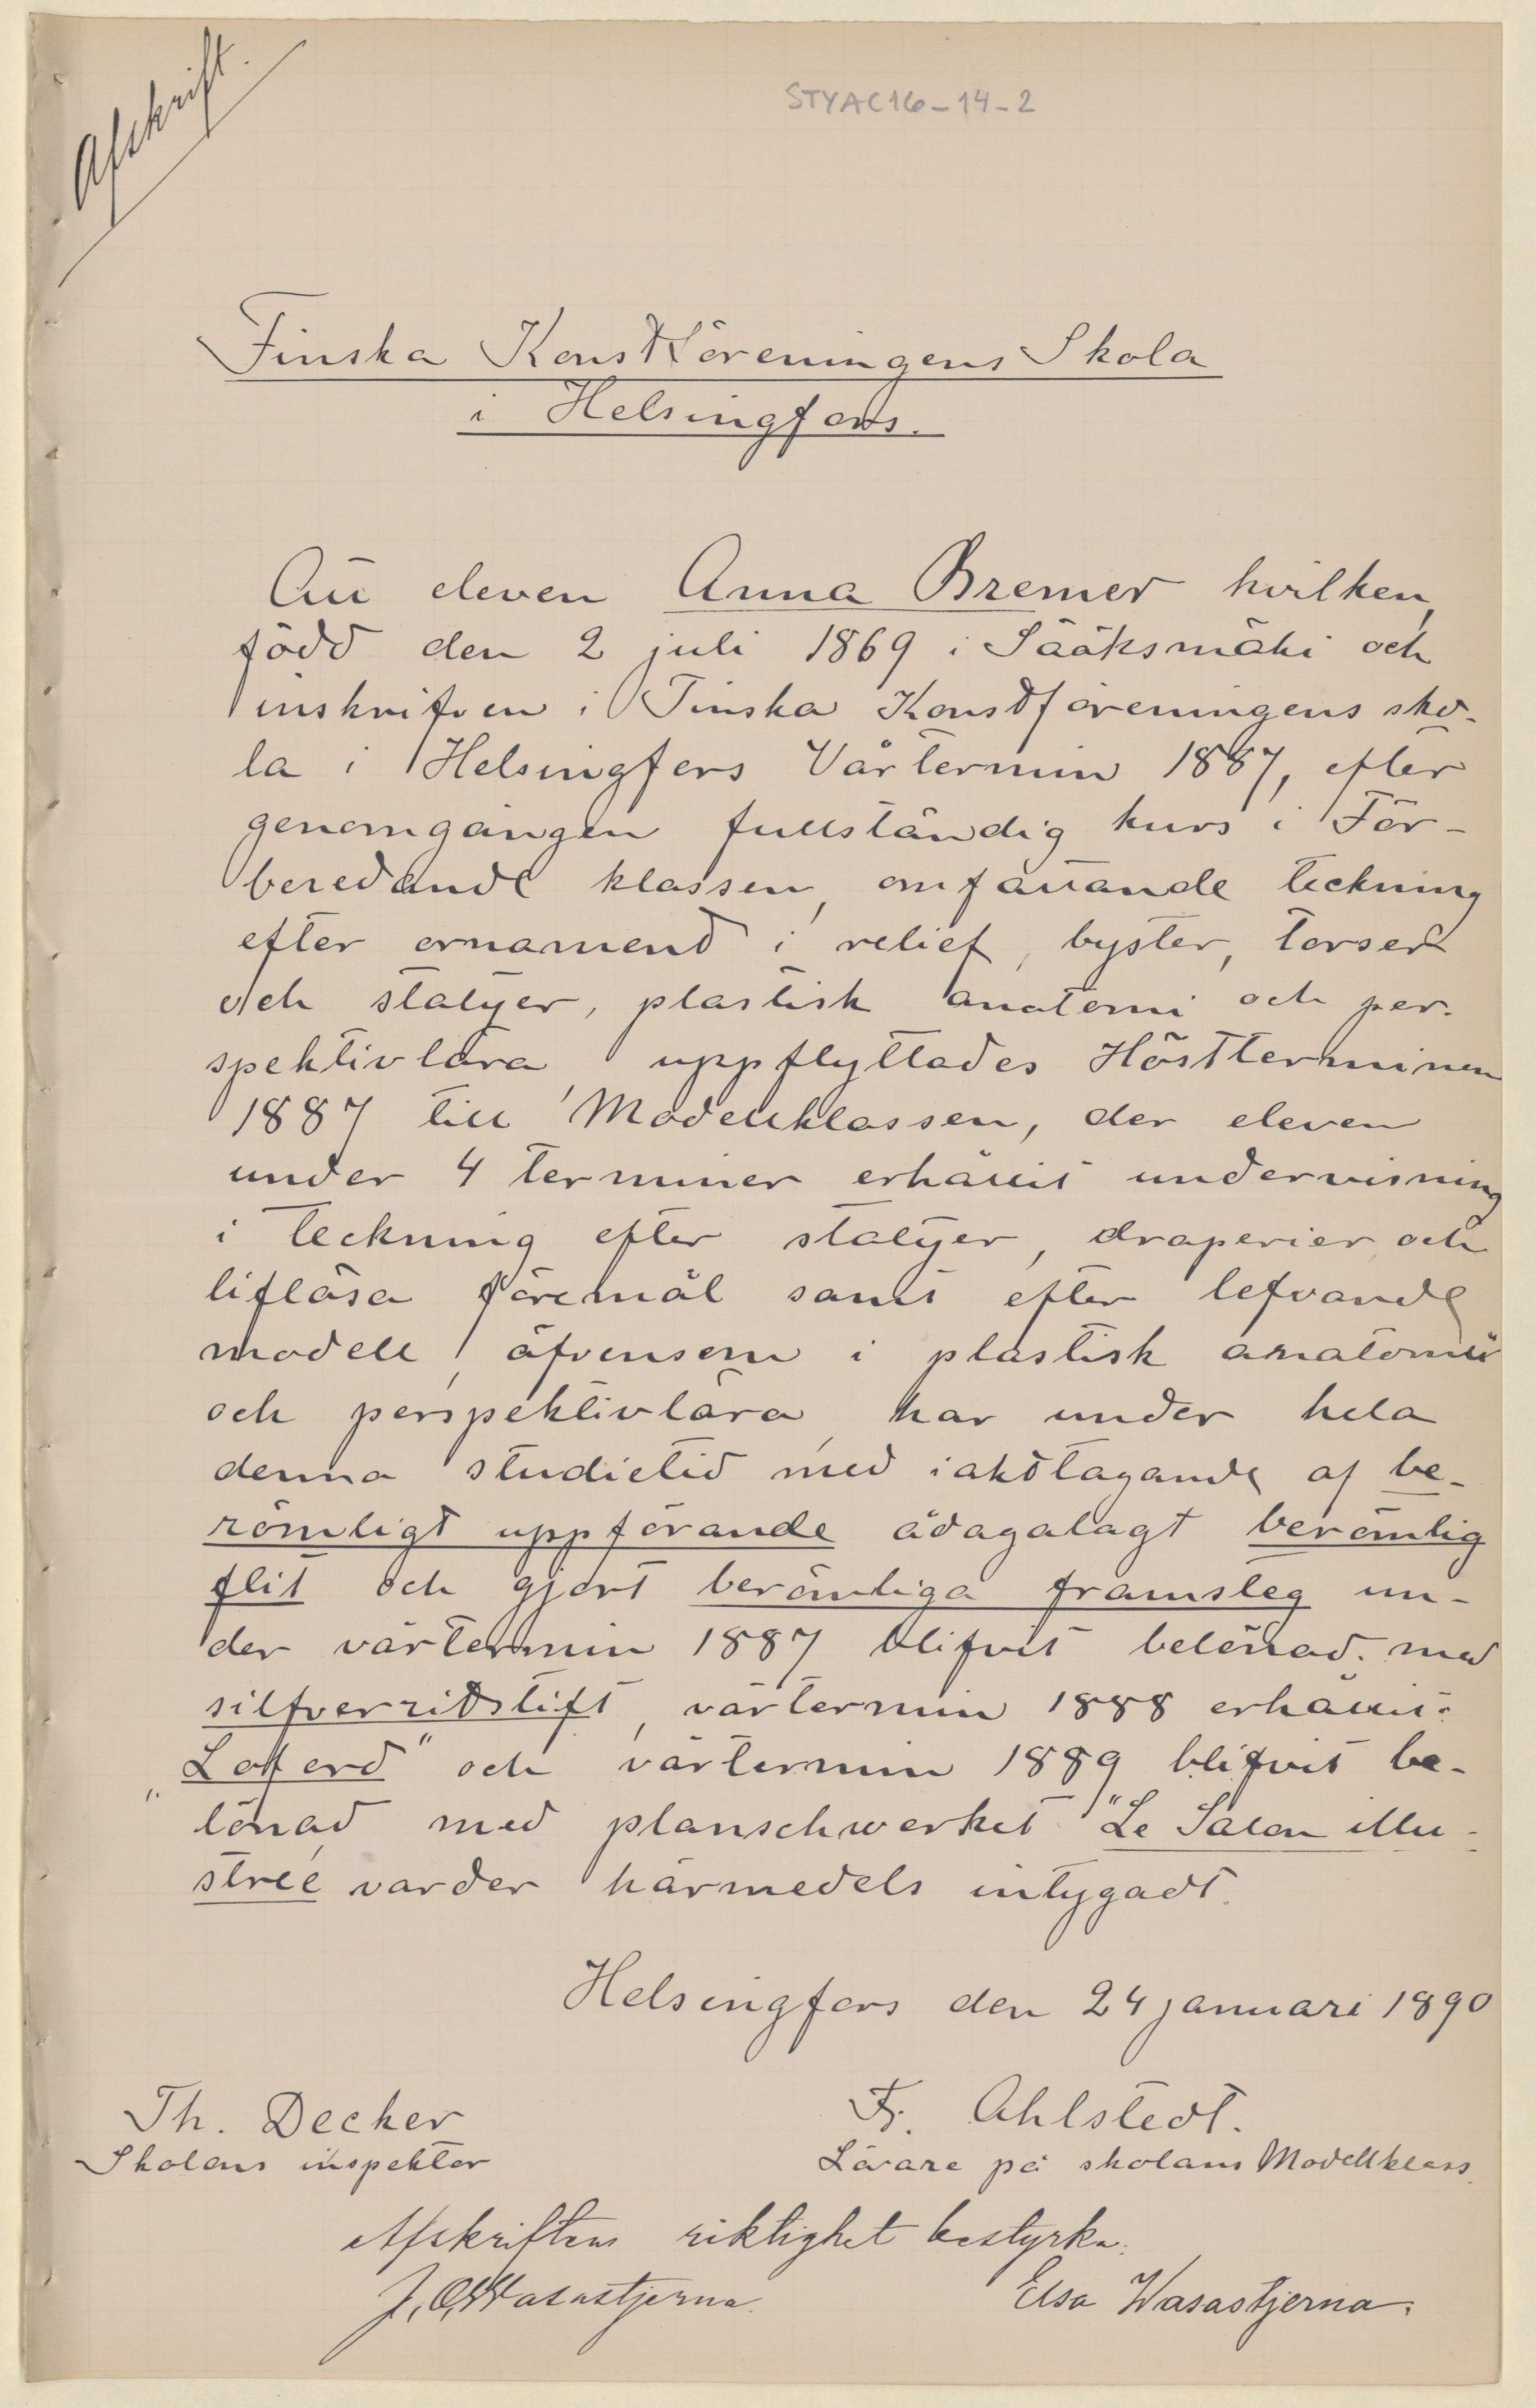 Afskrift.
STYAC16-14-2
Finska Konstföreningens Skola
i Helsingfors.
Att eleven Anna Bremer hvilken,
född den 2 juli 1869 i Sääksmäki och
inskrifven i Finska Konstföreningens sko-
la i Helsingfors Vårtermin 1887, efter
genomgången fullständig kurs i För-
beredande klassen, omfattande teckning
efter ornament i relief, byster, torser
och statyer, plastisk anatomi och per-
spektivlära, uppflyttades Höstterminen
1887 till Modellklassen, der eleven
under 4 terminer erhållit undervisning
i teckning efter statyer, draperier och
liflösa föremål samt efter lefvande
modell, äfvensom i plastisk anatomi
och perspektivlära, har under hela
denna studietid med iakttagande af be-
römligt uppförande ådagalagt berömlig
flit och gjort berömliga framsteg un-
der vårtermin 1887 blifvit belönad med
silfverritstift, vårtermin 1888 erhållit:
"Loford" och vårtermin 1889 blifvit be-
lönad med planschwerket "Le Salon illu-
streé varder härmedels intygadt.
Helsingfors den 24 januari 1890
Th. Decker
Fr. Ahlstedt.
Skolans inspektor
Lärare på skolans Modellklass.
Afskriftens riktighet bestyrka:
J. O. Wasastjerna.
Elsa Wasastjerna.